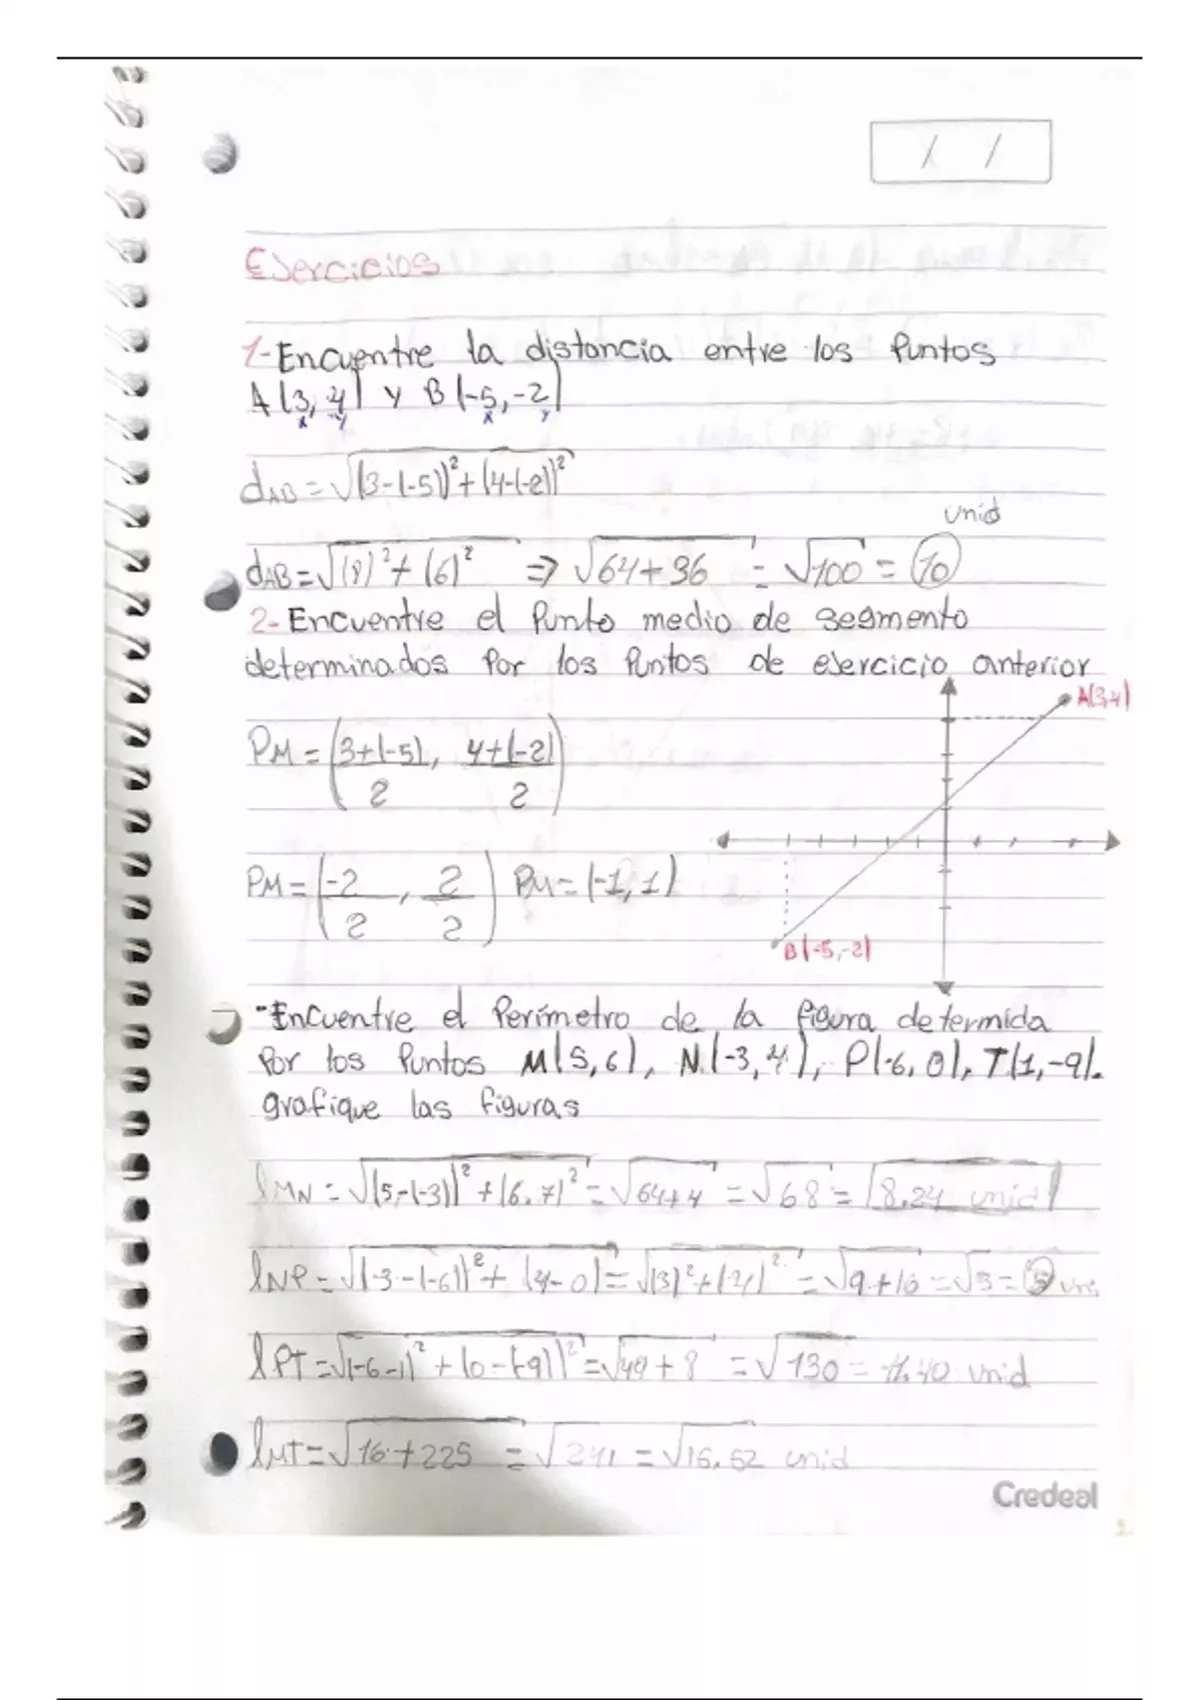 / /
Ejercicios
1-Encuentre la distancia entre los Puntos
A(3, 4) y B(-5, -2)
x y x y
dAB = √(3-(-5))² + (4-(-2))²
unid
dAB = √(8)² + (6)² ⇒ √64 + 36 = √100 = 10
2- Encuentre el Punto medio de segmento
determinados Por los Puntos de ejercicio anterior
A(3,4)
PM = (3+(-5)/2, 4+(-2)/2)
PM = (-2/2, 2/2) PM = (-1, 1)
B(-5,-2)
-Encuentre el Perímetro de la figura determida
Por los Puntos M(5, 6), N(-3, 4), P(-6, 0), T(1, -9).
grafique las figuras
lMN = √(5-(-3))² + (6. )² = √64+4 = √68 = 8.24 unid
lNP = √(-3-(-6))² + (4-0) = √(3)² + (4)² = √9+16 = √5 = 5 uni
lPT = √(-6-1)² + (0-(-9))² = √49 + 8 = √130 = 11.40 unid
lMT = √16 + 225 = √241 = √15.52 unid
Credeal